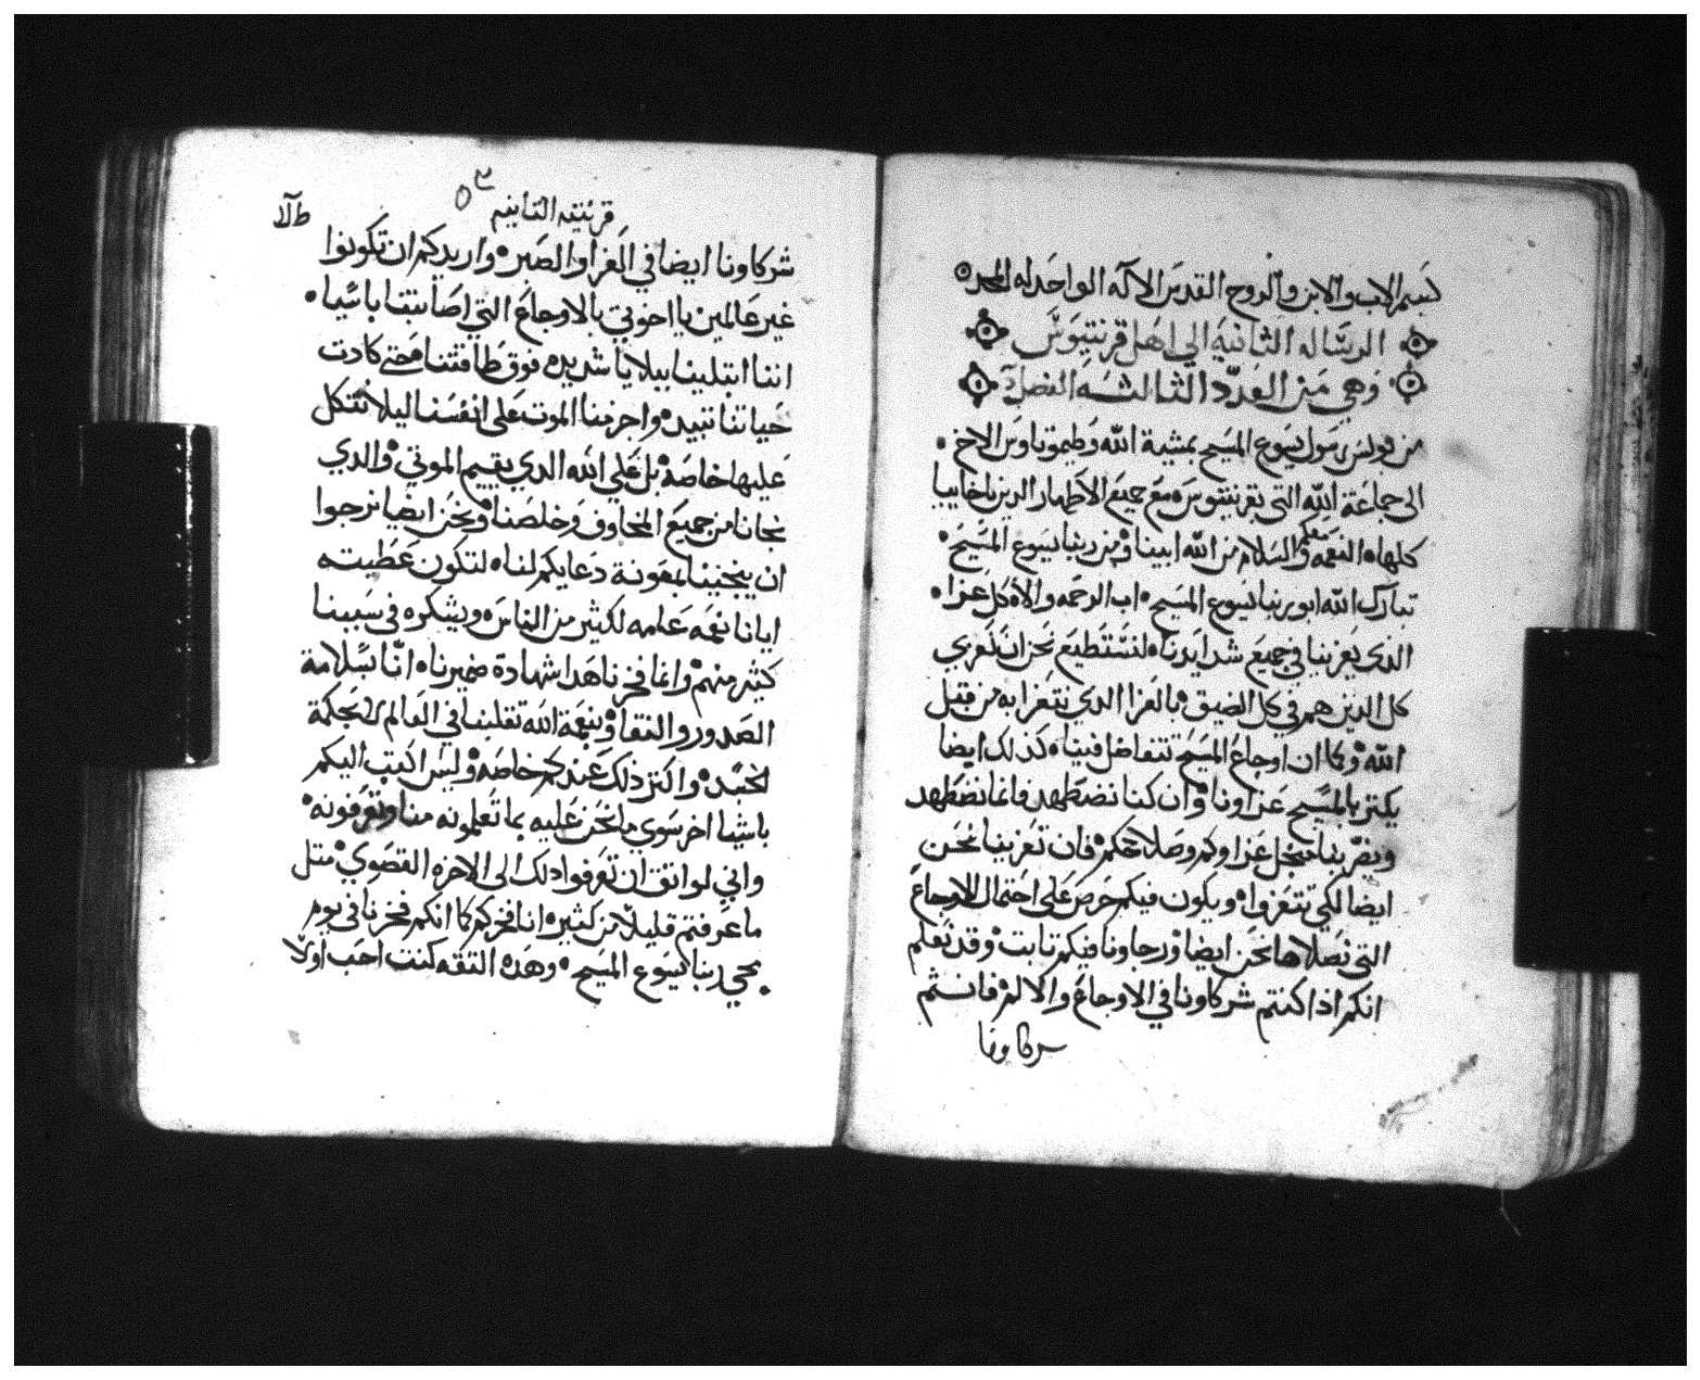 بسم الاب والابن والروح القدس الاله الواحد له المجد
الرساله الثانية الي اهل قرنتيوس
وهي من العدد الثالثه الفصل آ
من بولس رسول يسوع المسيح بمشية الله وطيموتاوس الاخ
الى جماعة الله التي بقرنتيوس مع جميع الاطهار الدين باخاييا
كلها النعمه معكم والسلام من الله ابينا ومن ربنا يسوع المسيح
تبارك الله ابو ربنا يسوع المسيح اب الرحمه والاه كل عزا
الذى يعزينا في جميع شدايدنا لنستطيع نحن ان نعزي
كل الدين هم في كل الضيق بالعزا الدي نتعزا به من قبل
الله وكما ان اوجاع المسيح تتفاضل فينا كذلك ايضا
يكتر بالمسيح عزاونا وان كنا نضطهد فانما نضطهد
ويضر بنا من اجل عزاوكم وصلاحكم فان تعزينا نحن
ايضا لكي تتعزوا ويكون فيكم حرص على احتمال الاوجاع
التى نصلاها نحن ايضا ورجاونا فيكم تابت وقد نعلم
انكم اذا كنتم شركاونا في الاوجاع والالام فانتم
شركاونا
قرنتيه التانيه
شركاونا ايضا في العزا والصبر واريدكم ان تكونوا
غير عالمين يا اخوتي بالاوجاع التي اصابتنا باسيا
اننا ابتلينا ببلايا شديده فوق طاقتنا حتى كادت
حياتنا تبيد واجزمنا الموت على انفسنا ليلا نتكل
عليها خاصة بل على الله الدي يقيم الموتى والدي
نجانا من جميع المخاوف وخلصنا ونحن ايضا نرجوا
ان ينجينا بمعونة دعايكم لنا لتكون عطيته
ايانا نعمه عامه لكثير من الناس ويشكره في سببنا
كثير منهم وانما فخرنا هدا شهادة ضميرنا انا بسلامة
الصدور والنقا وبنعمة الله تقلبنا في العالم لا بحكمة
الجسد واكتر ذلك عندكم خاصه وليس اكتب اليكم
باشيا اخر سوي ما نحن عليه بما تعلمونه منا وتعرفونه
واني لواتق ان تعرفوا دلك الى الاخره القصوي متل
ما عرفتم قليلا من كثير انا فخركم كما انكم فخرنا في يوم
مجي ربنا يسوع المسيح وهده التقه كنت احب اولا